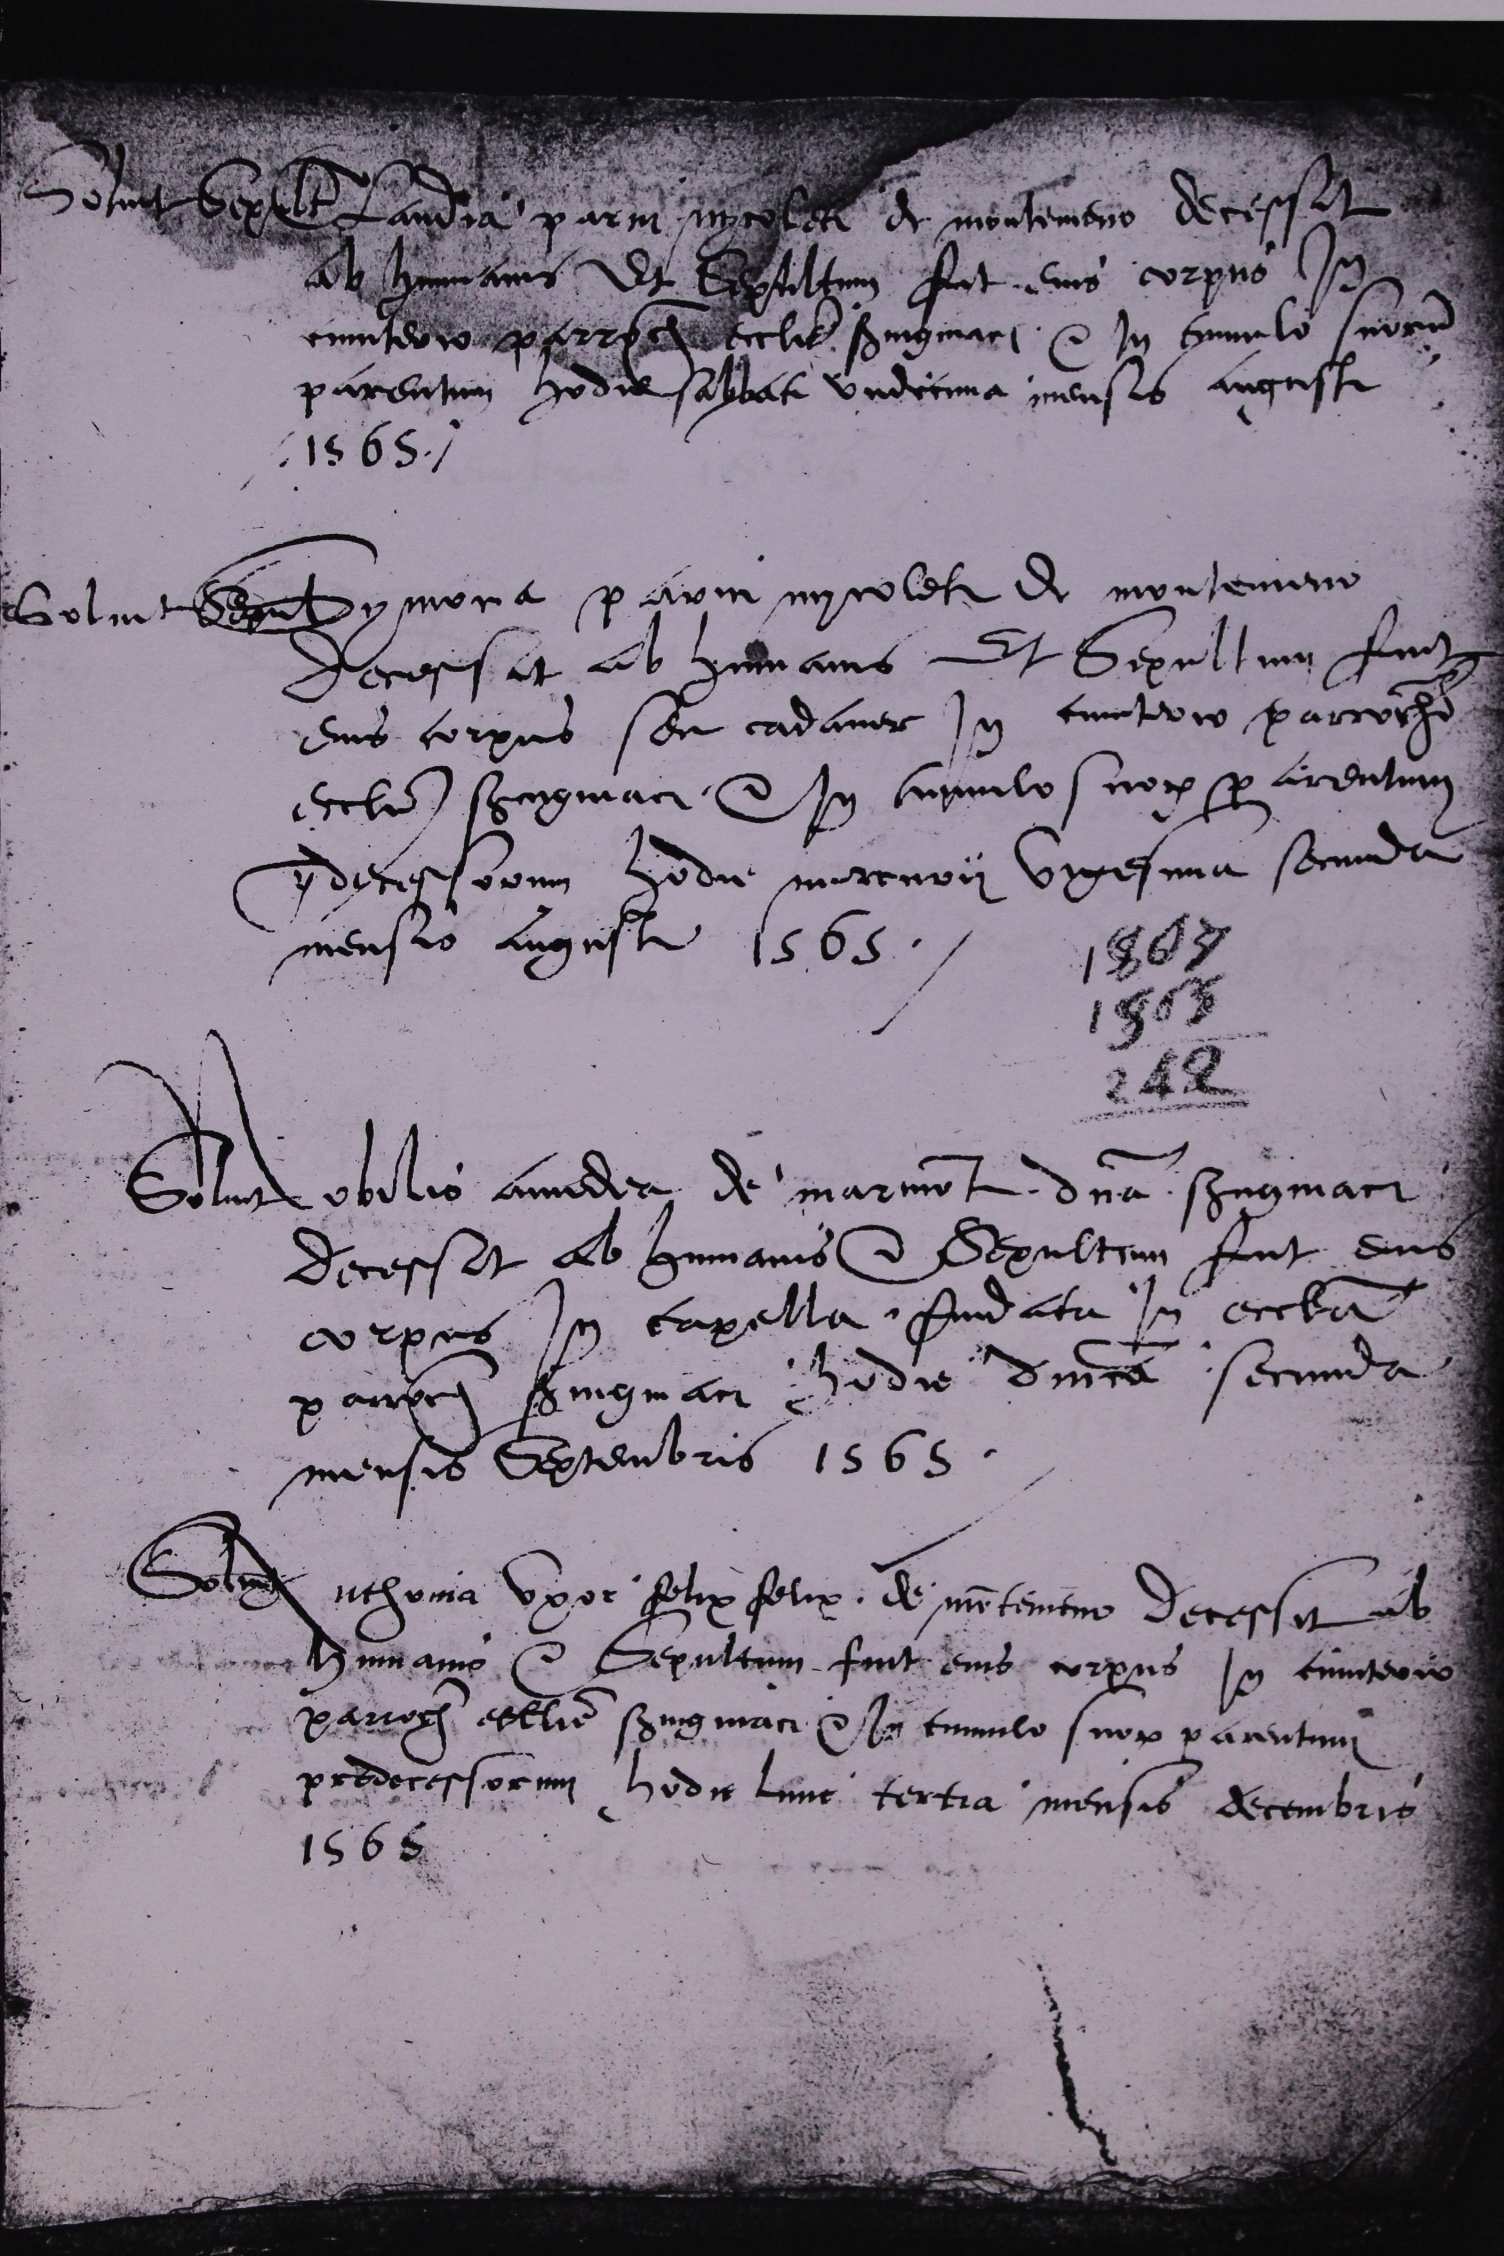 Solvit Sepult Claudia parvi nycoleti de montemeno decessit
ab humanis Et Sepultum fuit eius corpus In
cimiterio parrochi ecclie signiaci & In tumulo suorum
parentum hodie sabbati undecima mensis augusti
1565 /
Solvit Sepult Symona parvi nycoleti de montemeno
decessit ab humanis Et Sepultum fuit
eius corpus seu cadaver In cimiterio parrochi
ecclie signiaci & In tumulo suor parentum
predecessorum hodie mercurii vigesima secunda
mensis augusti 1565 /
1807
1565
242
Solvit Nobilis amedea de marmont dna signiaci
decessit ab humanis & Sepultum fuit eius
corpus In capella fundata In ecclia
parrochi signiaci hodie dnica secunda
mensis Septembris 1565
Solvit Anthonia uxor felix felix de montemeno decessit ab
humanis & Sepultum fuit eius corpus In cimiterio
parrochi ecclie signiaci & In tumulo suor parentum
predecessorum hodie lune tertia mensis decembris
1565